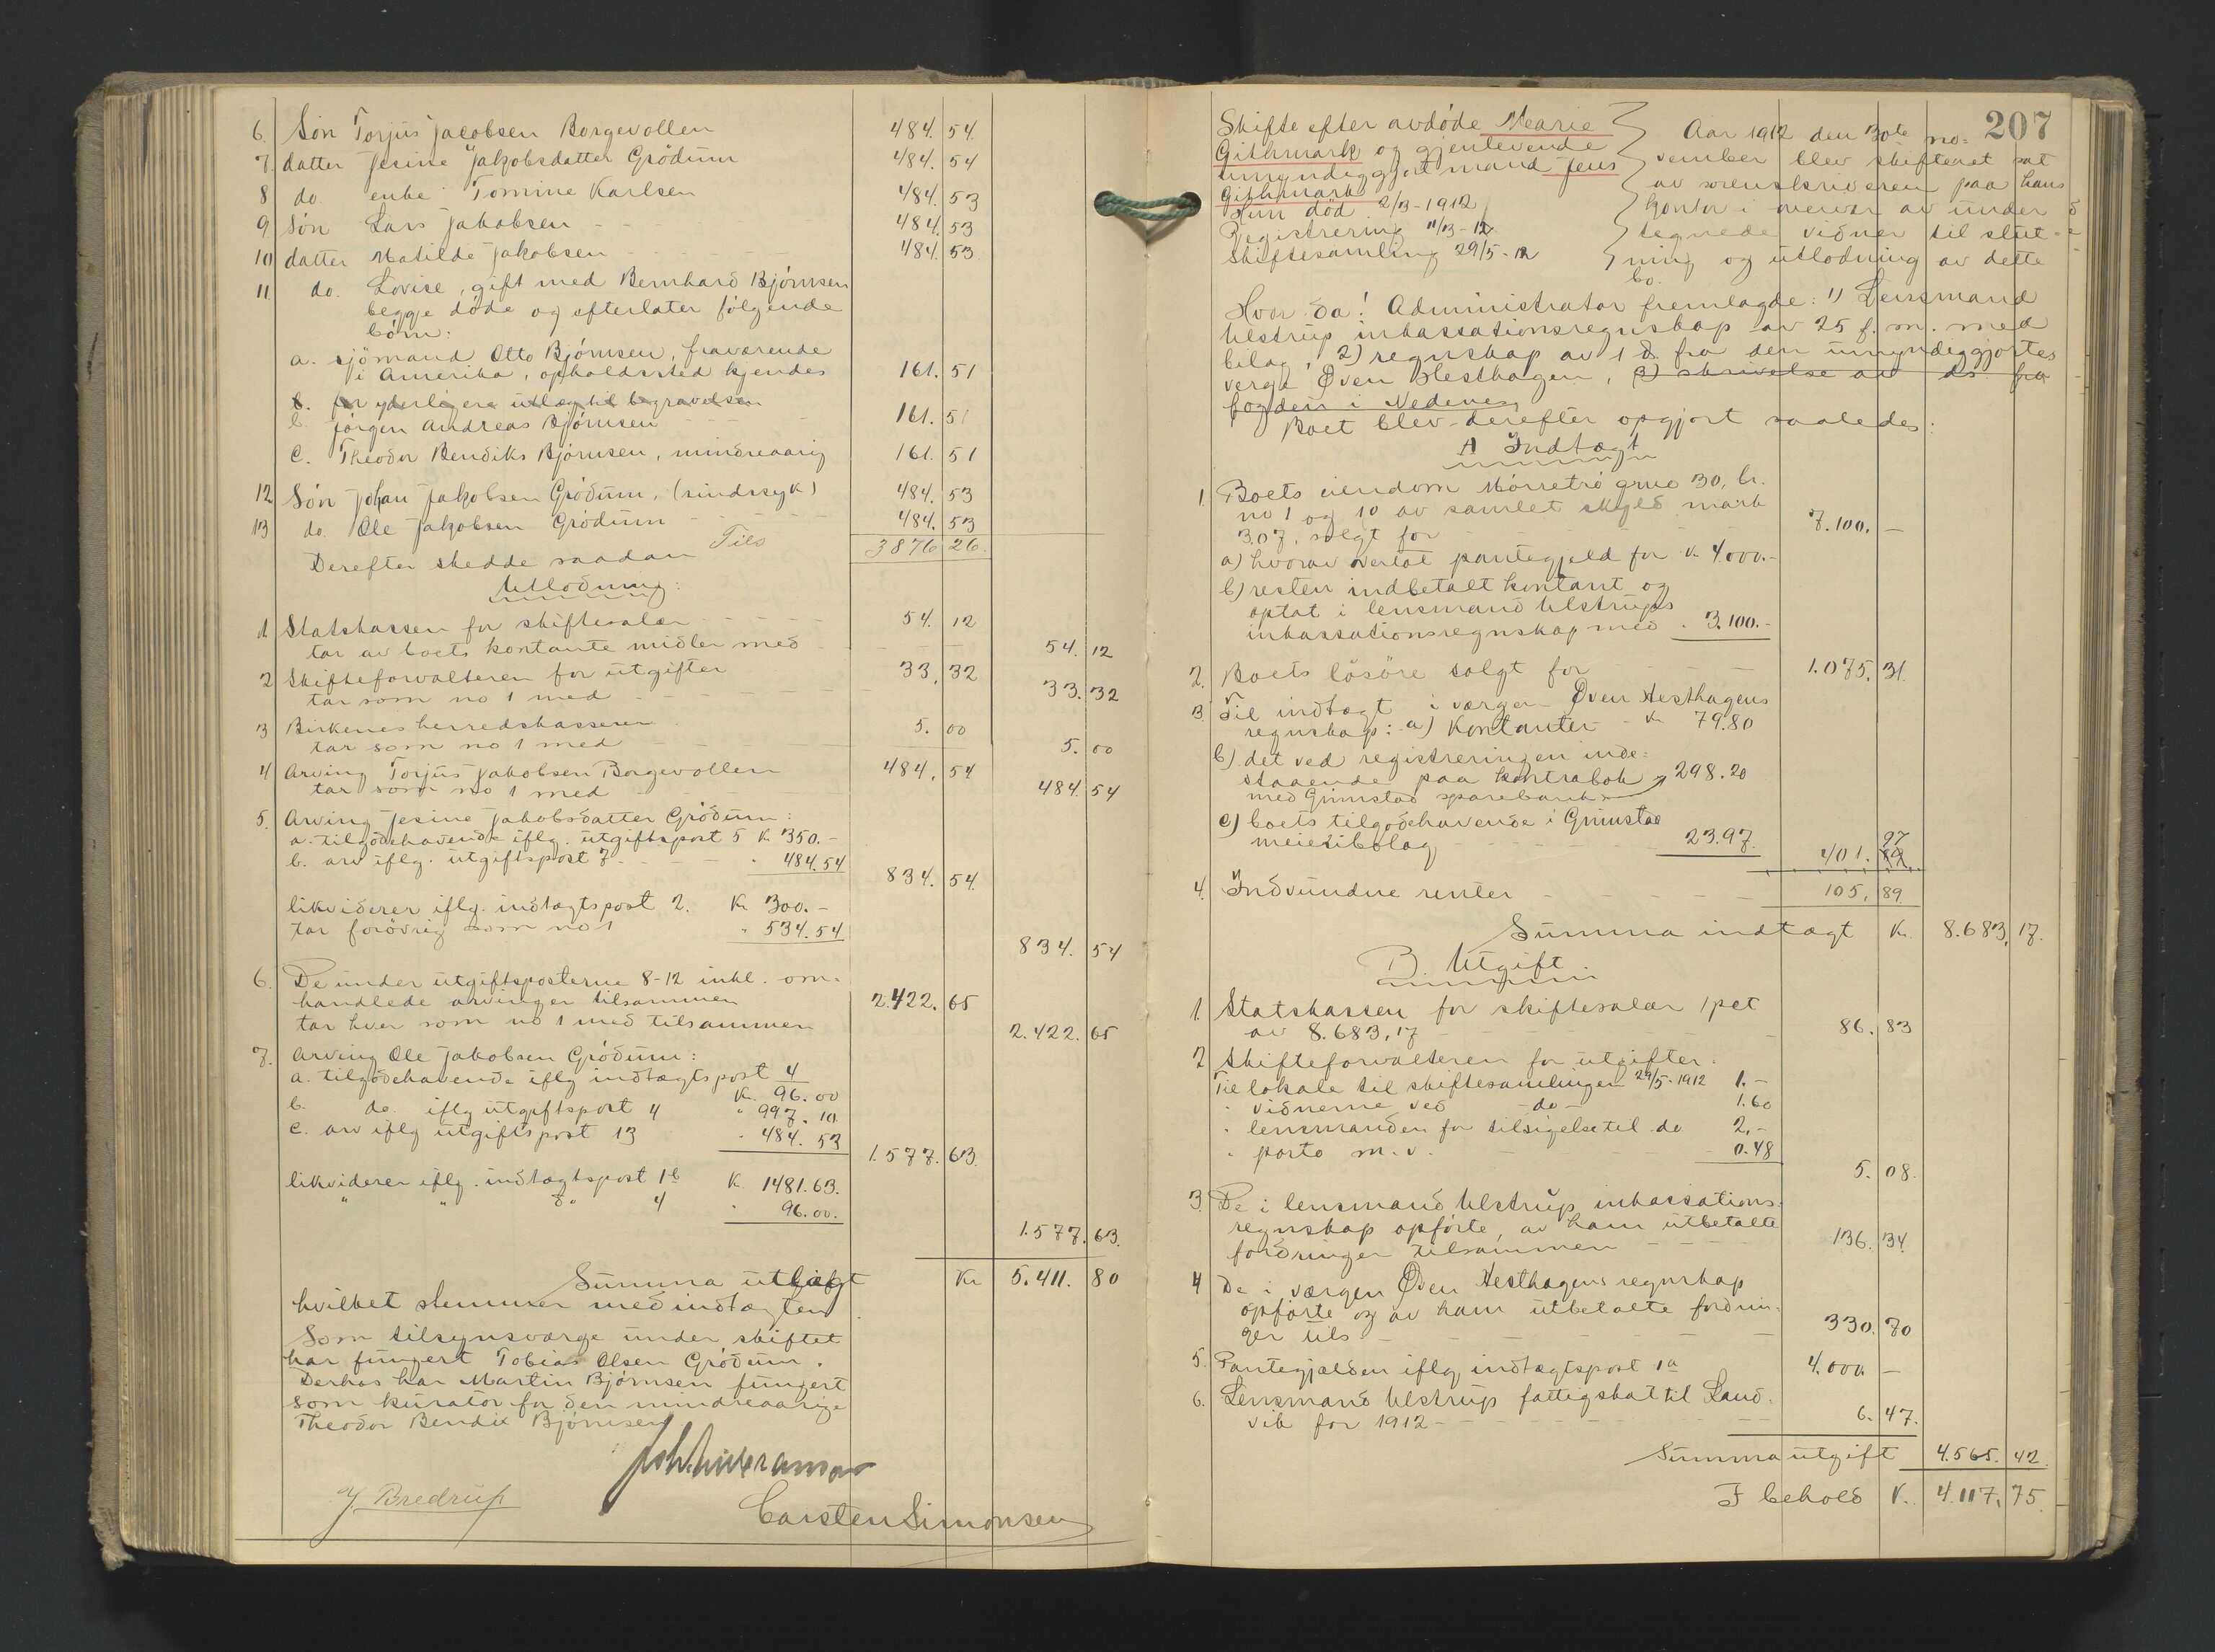 6. Søn Torjus Jacobsen Borgevollen 484. 54.
7. datter Jesine Jakobsdatter Grødum 484. 54
8 do. enke Tomine Karlsen 484. 53
9. Søn Lars Jakobsen - - - 484. 53
10 datter Matilde Jakobsen - - - 484. 53
11. do. Lovise, gift med Bernhard Bjørnsen
begge døde og efterlater følgende
børn:
a. sjømand Otto Bjørnsen, fraværende
i Amerika, opholdssted kjendes 161. 51
b. for yderligere utlæg til begravelsen
b. Jørgen Andreas Bjørnsen - - - 161. 51
C. Theodor Bendiks Bjørnsen, mindreaarig 161. 51
12 Søn Johan Jakobsen Grødum, (sindssyk) 484. 53
13 do. Ole Jakobsen Grødum - - - 484. 53
Tils 3876 26.
Derefter skedde saadan
Utlodning:
1 Statskassen for skiftesalær - - - 54. 12
tar av boets kontante midler med - - - 54. 12
2 Skifteforvalteren for utgifter 33. 32
tar som no 1 med - - - 33. 32
3 Birkenes herredskasserer 5. 00
tar som no 1 med - - - 5. 00
4 Arving Torjus Jakobsen Borgevollen 484. 54
tar som no 1 med - - - 484. 54
5. Arving Jesine Jakobsdatter Grødum:
a. tilgodehavende iflg. utgiftspost 5 K. 350.-
b. arv iflg. utgiftspost 7 - - - " 484.54
834. 54.
likviderer iflg. indtægtspost 2. Kr 300.-
tar forøvrig som no 1 " 534.54
834. 54
6. De under utgiftsposterne 8-12 inkl. om-
handlede arvinger tilsammen 2.422. 65
tar hver som no 1 med tilsammen 2.422. 65
7. Arving Ole Jakobsen Grødum:
a. tilgodehavende iflg indtægtspost 4
Kr. 96.00
b. do. iflg utgiftspost 4 " 997.10
c. arv iflg utgiftspost 13 " 484.53
1.577. 63.
likviderer iflg. indtægtspost 1b K. 1481.63.
" " do 4 " 96.00.
1.577. 63.
Summa utlagt Kr 5.411. 80
hvilket stemmer med indtægten
Som tilsynsværge under skiftet
har fungert Tobias Olsen Grødum.
Derhos har Martin Bjørnsen fungert
som kurator for den mindreaarige
Theodor Bendix Bjørnsen
J. Bredrup
Carsten Simonsen
207
Skifte efter avdøde Marie
Githmark og gjenlevende
umyndiggjort mand Jens
Githmark
Hun død 2/3-1912
Registrering 11/3-12
Skiftesamling 29/5-12
Aar 1912 den 30te no-
vember blev skifteret sat
av sorenskriveren paa hans
kontor i overvær av under
tegnede vidner til slut-
ning og utlodning av dette
bo.
Hvor da! Administrator fremlagde: 1) Lensmand
Ulstrup inkassationsregnskap av 25 f. m. med
bilag, 2) regnskap av 1 ds. fra den umyndiggjortes
verge Øven Hesthagen, 3) skrivelse av ds fra
fogden i Nedenes
Boet blev derefter opgjort saaledes:
A Indtægt
1. Boets eiendom Mørretrø gnro 30, br.
no 1 og 10 av samlet skyld mark
3.07, solgt for - - - 7.100. -
a) hvorav overtat pantegjeld for K 4000.-
b) resten indbetalt kontant og
optat i lensmand Ulstrups
inkassationsregnskap med " 3.100.-
2. Boets løsøre solgt for - - - 1.075. 31.
3. Til indtægt i værgen Øven Hesthagens
regnskap: a) Kontanter - Kr 79.80
b) det ved registreringen inde-
staaende paa kontrabok 298.20
med Grimstad sparebank
c) boets tilgodehavende i Grimstad
meieribolag 23.97.
401. 97
4. Indvundne renter - - - 105. 89
Summa indtægt Kr. 8.683, 17.
B. Utgift
1. Statskassen for skiftesalær 1 pct
av 8.683,17 - - - 86. 83
2 Skifteforvalteren for utgifter:
Til lokale til skiftesamlingen 29/5-1912 1.-
" vidnerne ved - do - 1.60
" lensmanden for tilsigelse til do 2,-
" porto m.v. - - - 0.48
5. 08.
3. De i lensmand Ulstrup inkassations-
regnskap opførte, av ham utbetalte
fordringer tilsammen - - - 136. 34.
4 De i værgen Øven Hesthagens regnskap
opførte og av ham utbetalte fordrin-
ger tils - - - 330. 70
5. Pantegjælden iflg indtægtspost 1a 4.000. -
6. Lensmand Ulstrup fattigskat til Land-
vik for 1912 - - - 6. 47.
Summa utgift 4.565. 42.
I behold K. 4.117, 75.